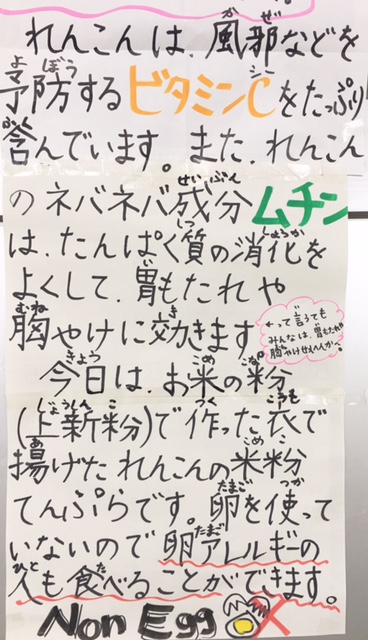 れんこんは、風邪などを
予防するビタミンCをたっぷり
含んでいます。また、れんこん
のネバネバ成分ムチン
は、たんぱく質の消化を
よくして、胃もたれや
胸やけに効きます。
←って言うても
みんなは、胃もたれ
胸やけせんへんか。
今日は、お米の粉
(上新粉)で作った衣で
揚げたれんこんの米粉
てんぷらです。卵を使って
いないので卵アレルギーの
人も食べることができます。
Non Egg